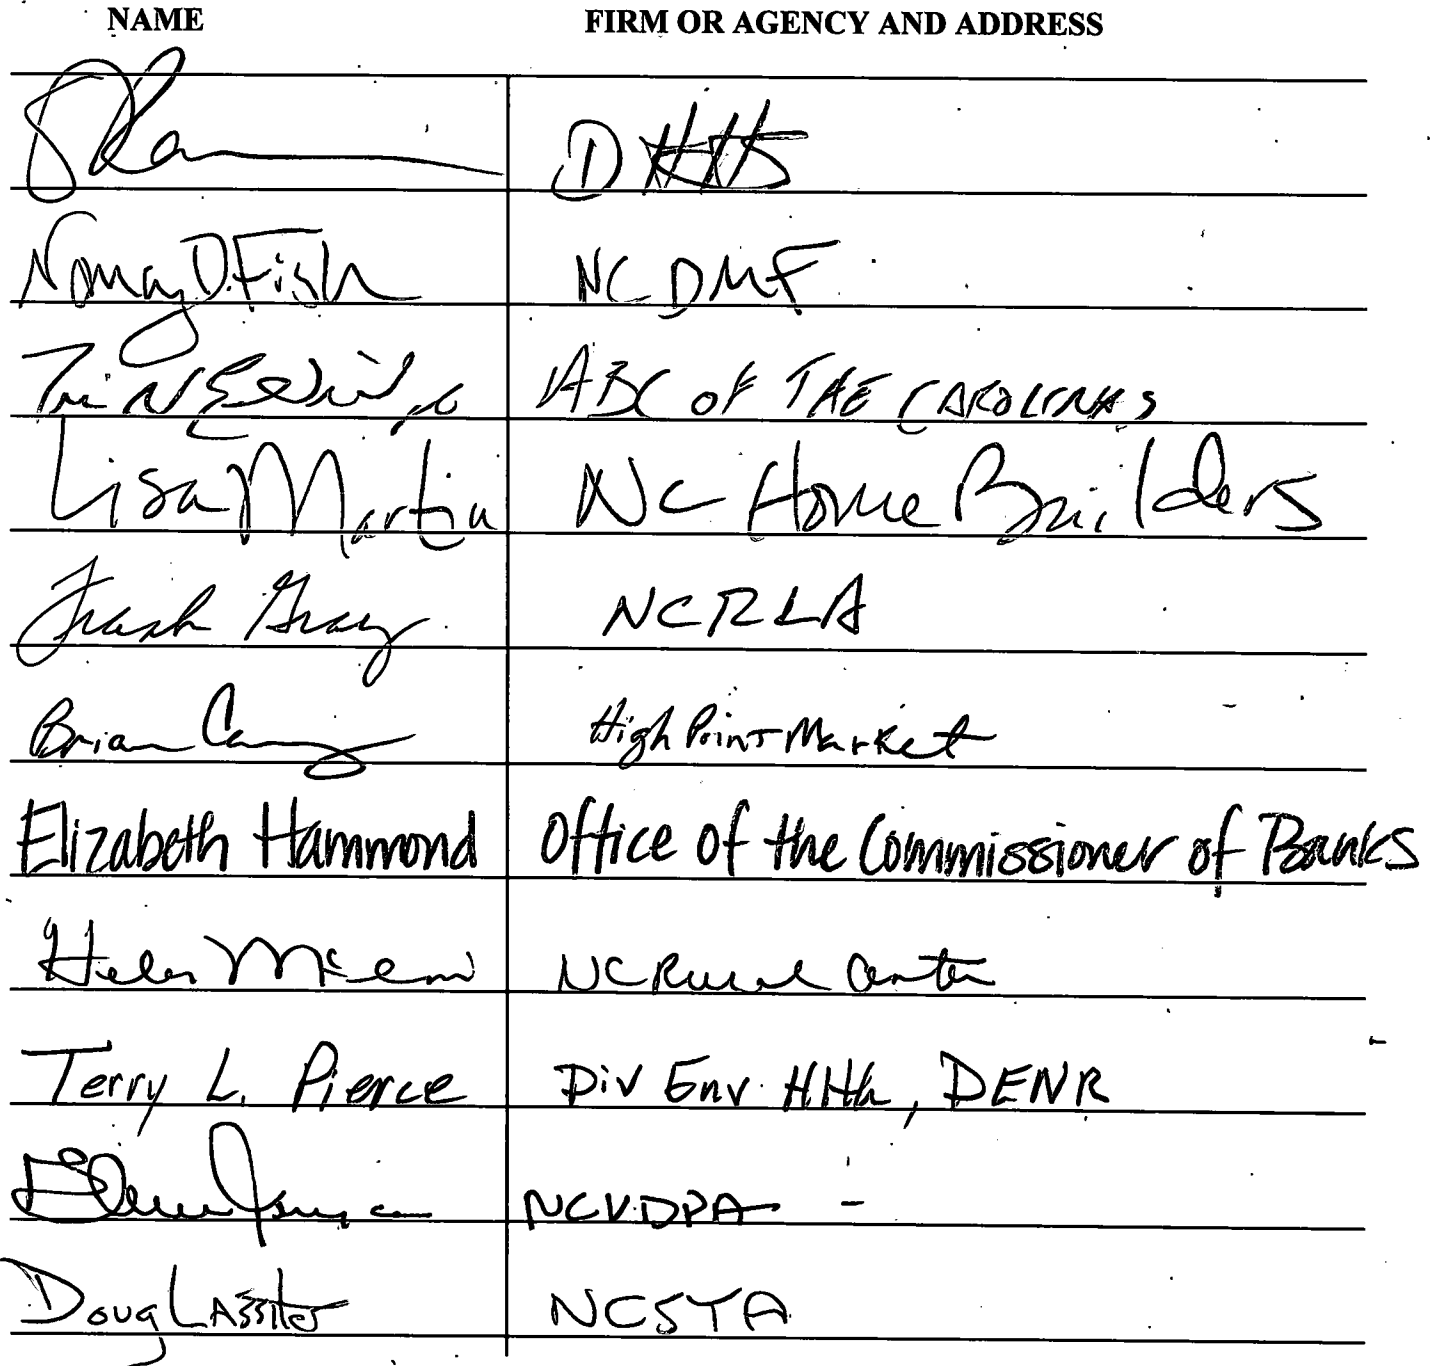 NAME FIRM OR AGENCY AND ADDRESS
DHHS
Nancy D. Fish NC DMF
ABC OF THE CAROLINAS
Lisa Martin NC Home Builders
Frank Gray NCRLA
Brian High Point Market
Elizabeth Hammond Office of the Commissioner of Banks
Helen NC Rural Center
Terry L. Pierce Div Env Hlth, DENR
NCVDPA -
Doug LASSiter NCSTA